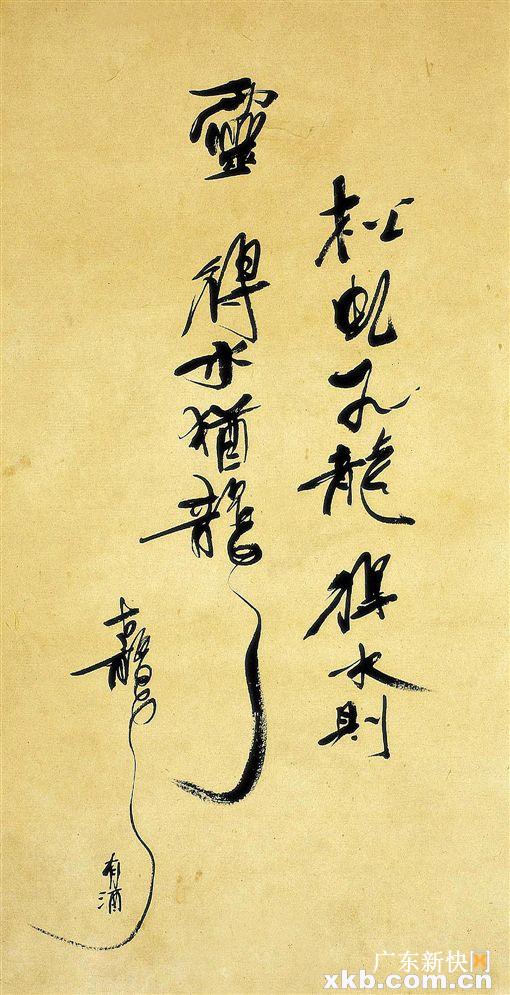 松虬龍 得水則
靈 得水猶龍
有酒
广东新快网
xkb.com.cn